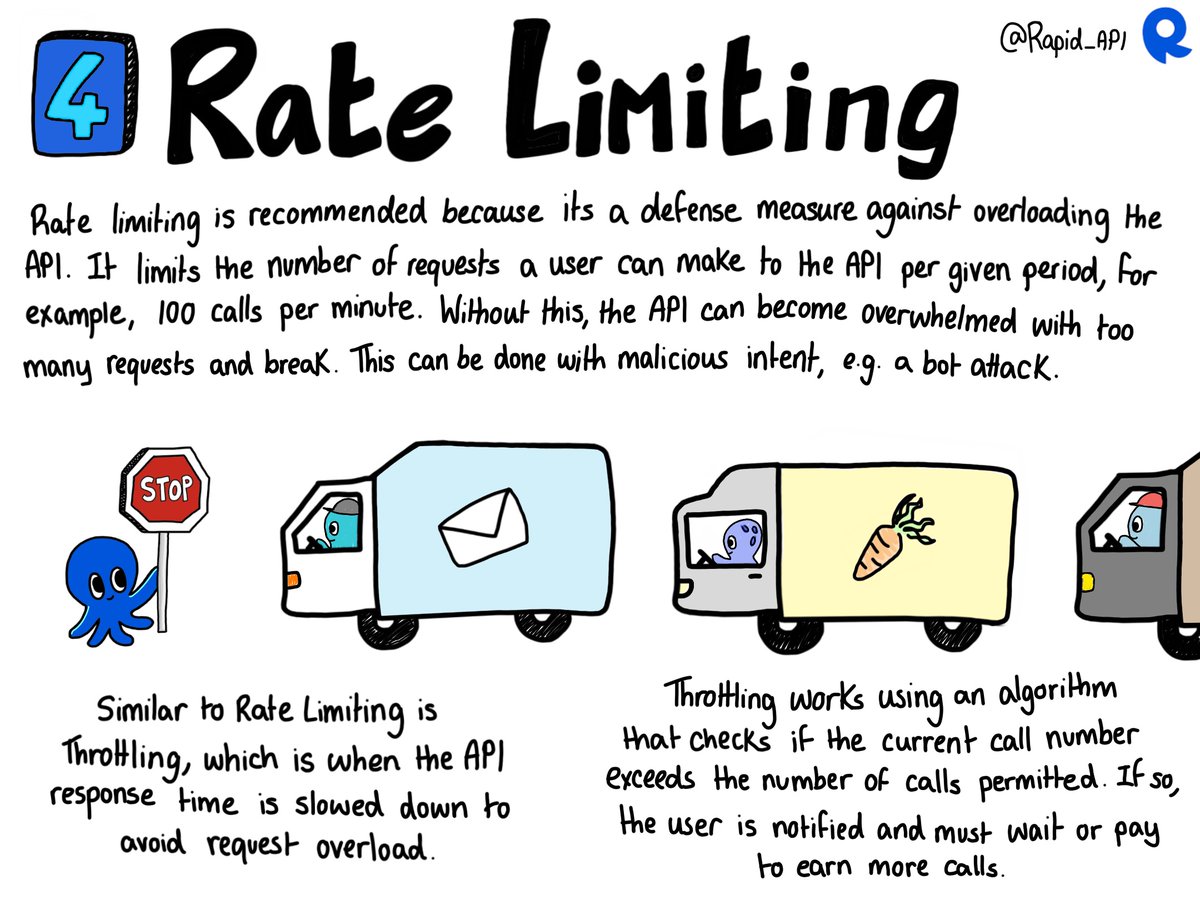 4 Rate Limiting
@Rapid_API
Rate limiting is recommended because its a defense measure against overloading the
API. It limits the number of requests a user can make to the API per given period, for
example, 100 calls per minute. Without this, the API can become overwhelmed with too
many requests and break. This can be done with malicious intent, e.g. a bot attack.
STOP
Similar to Rate Limiting is
Throttling, which is when the API
response time is slowed down to
avoid request overload.
Throttling works using an algorithm
that checks if the current call number
exceeds the number of calls permitted. If so,
the user is notified and must wait or pay
to earn more calls.